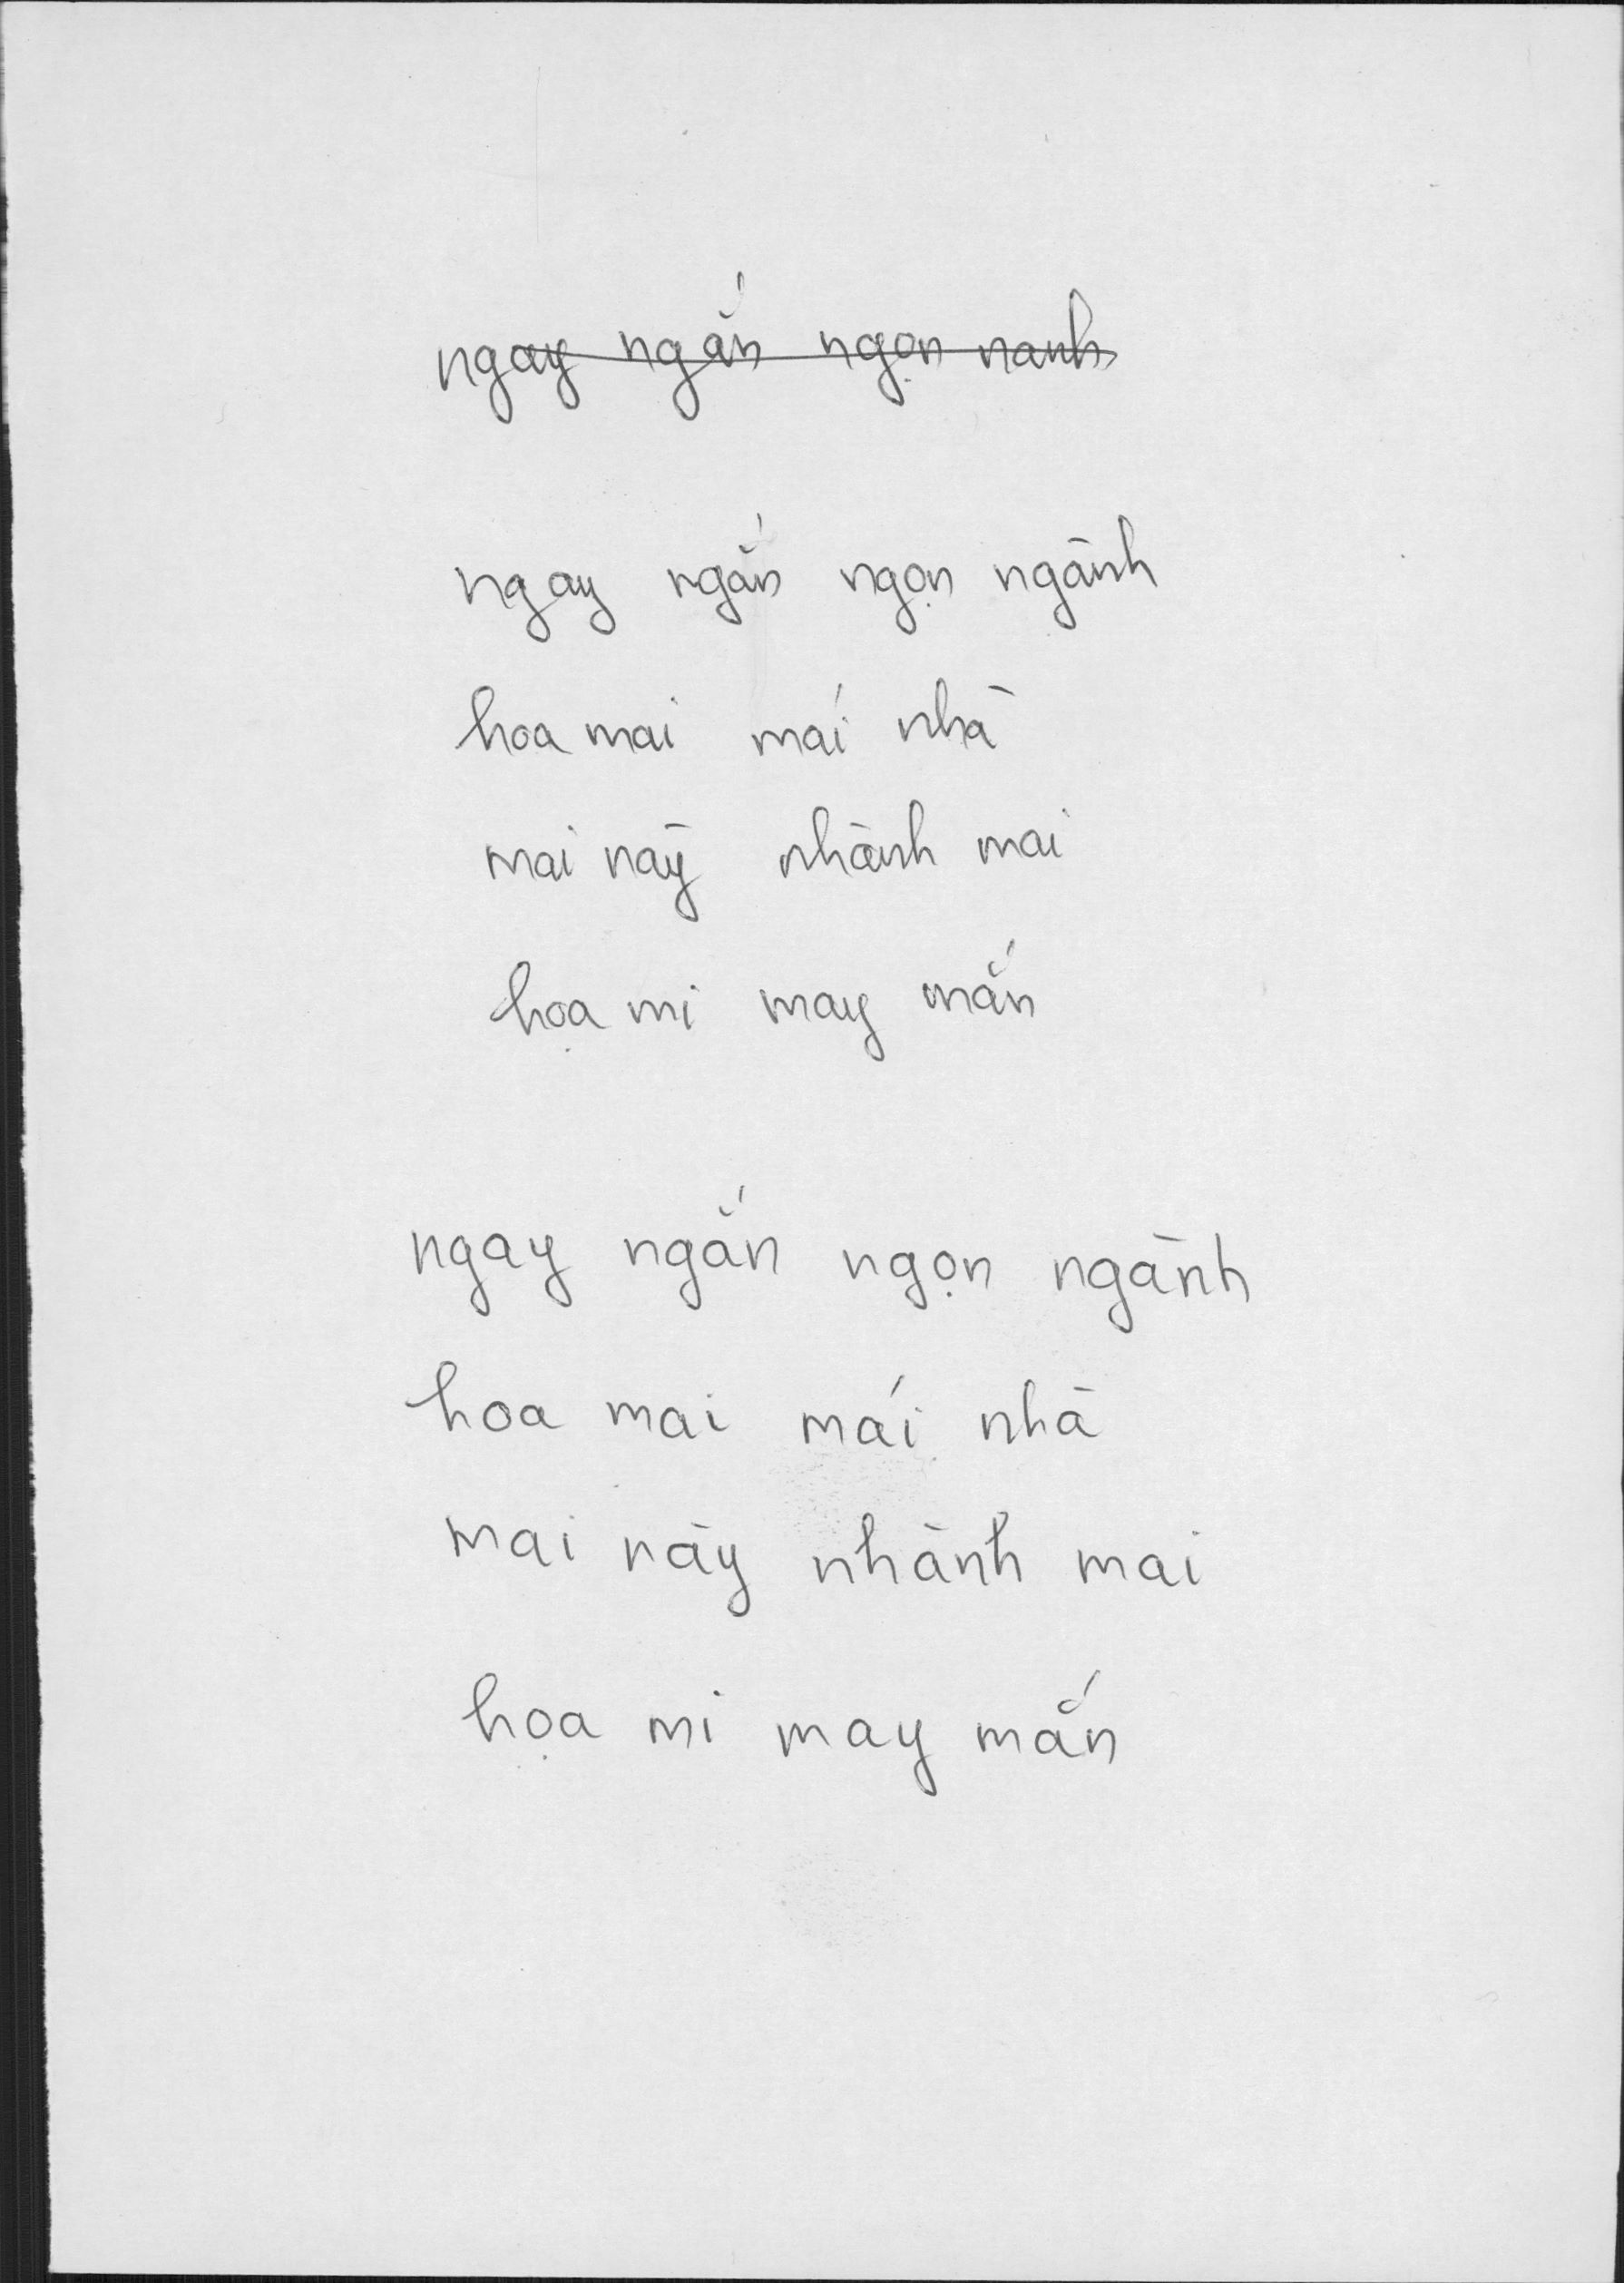 ngay ngắn ngọn nanh
ngay ngắn ngọn ngành
hoa mai mái nhà
mai này nhành mai
họa mi may mắn
ngay ngắn ngọn ngành
hoa mai mái nhà
mai này nhành mai
họa mi may mắn